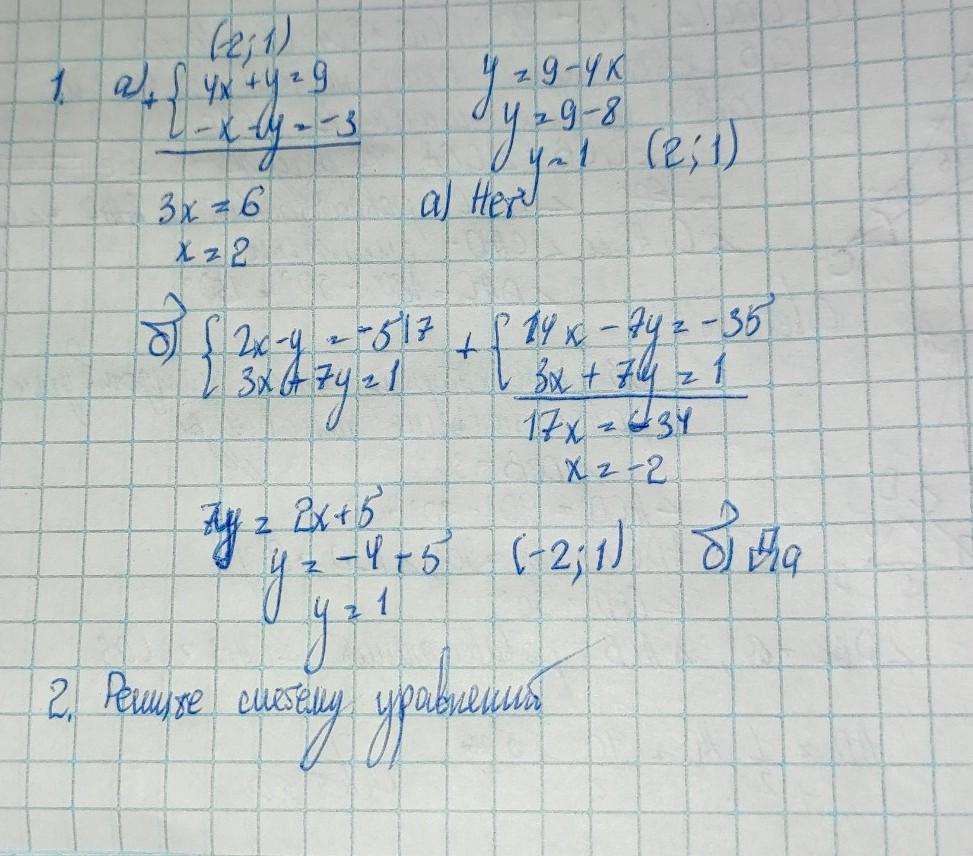 (-2; 1)
1. а) + { 4x + y = 9
-x - y = -3
3x = 6
x = 2
y = 9 - 4x
y = 9 - 8
y = 1 (2; 1)
а) Нет
б) { 2x - y = -5 | 7
3x + 7y = 1
+ { 14x - 7y = -35
3x + 7y = 1
17x = -34
x = -2
y = 2x + 5
y = -4 + 5 (-2; 1) б) Да
y = 1
2. Решите систему уравнений